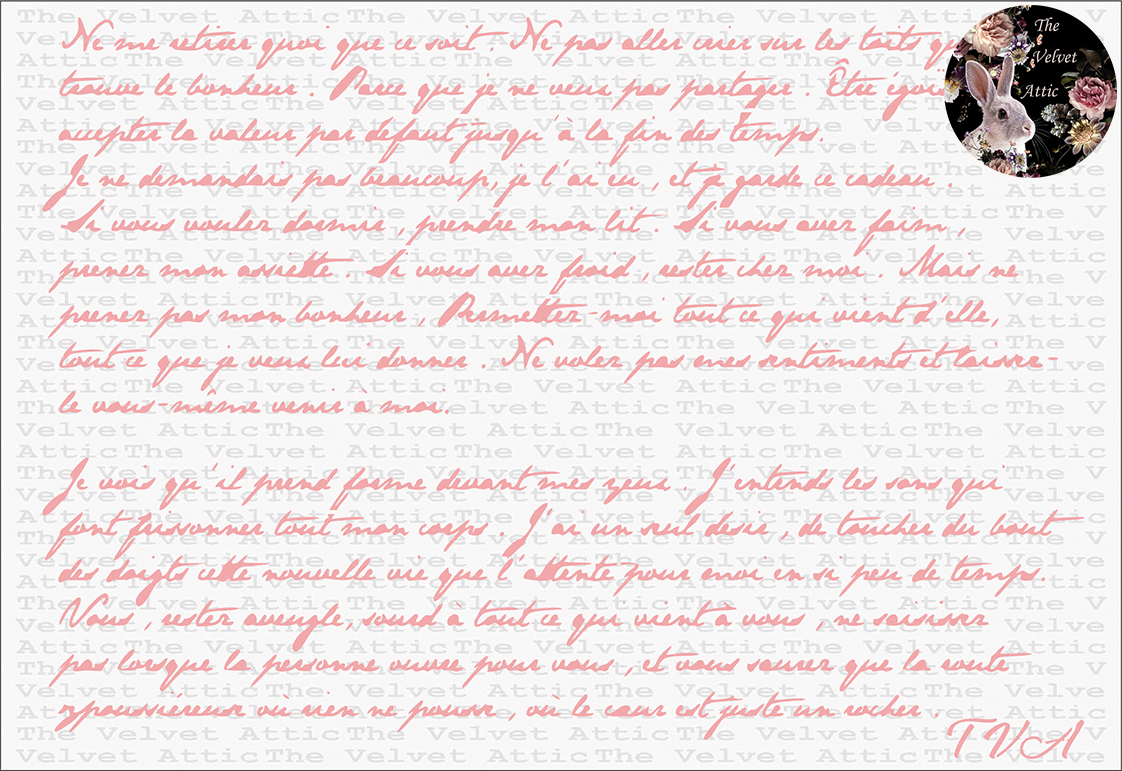 Ne me retirer quoi que ce soit . Ne pas aller crier sur les toits
trouve le bonheur . Parce que je ne veux pas partager . Être
accepter la valeur par défaut jusqu'à la fin des temps.
Je ne demandais pas beaucoup, je l'ai eu , et je garde ce cadeau .
Si vous voulez dormir , prendre mon lit . Si vous avez faim ,
prenez mon assiette . Si vous avez froid , restez chez moi . Mais ne
prenez pas mon bonheur , Permettez-moi tout ce qui vient d'elle,
tout ce que je veux lui donner . Ne volez pas mes sentiments et laissez-
le vous-même venir à moi.
Je vois qu'il prend forme devant mes yeux . J'entends les sons qui
font frissonner tout mon corps . J'ai un seul desir , de toucher du bout
des doigts cette nouvelle vie que l'attente pour moi en si peu de temps.
Vous , restez aveugle, sourd à tout ce qui vient à vous , ne saisissez
pas lorsque la personne vivre pour vous , et vous saurez que la route
poussiéreux où rien ne pousse , où le cœur est juste un rocher .
TVA
The
Velvet
Attic
The Velvet Attic